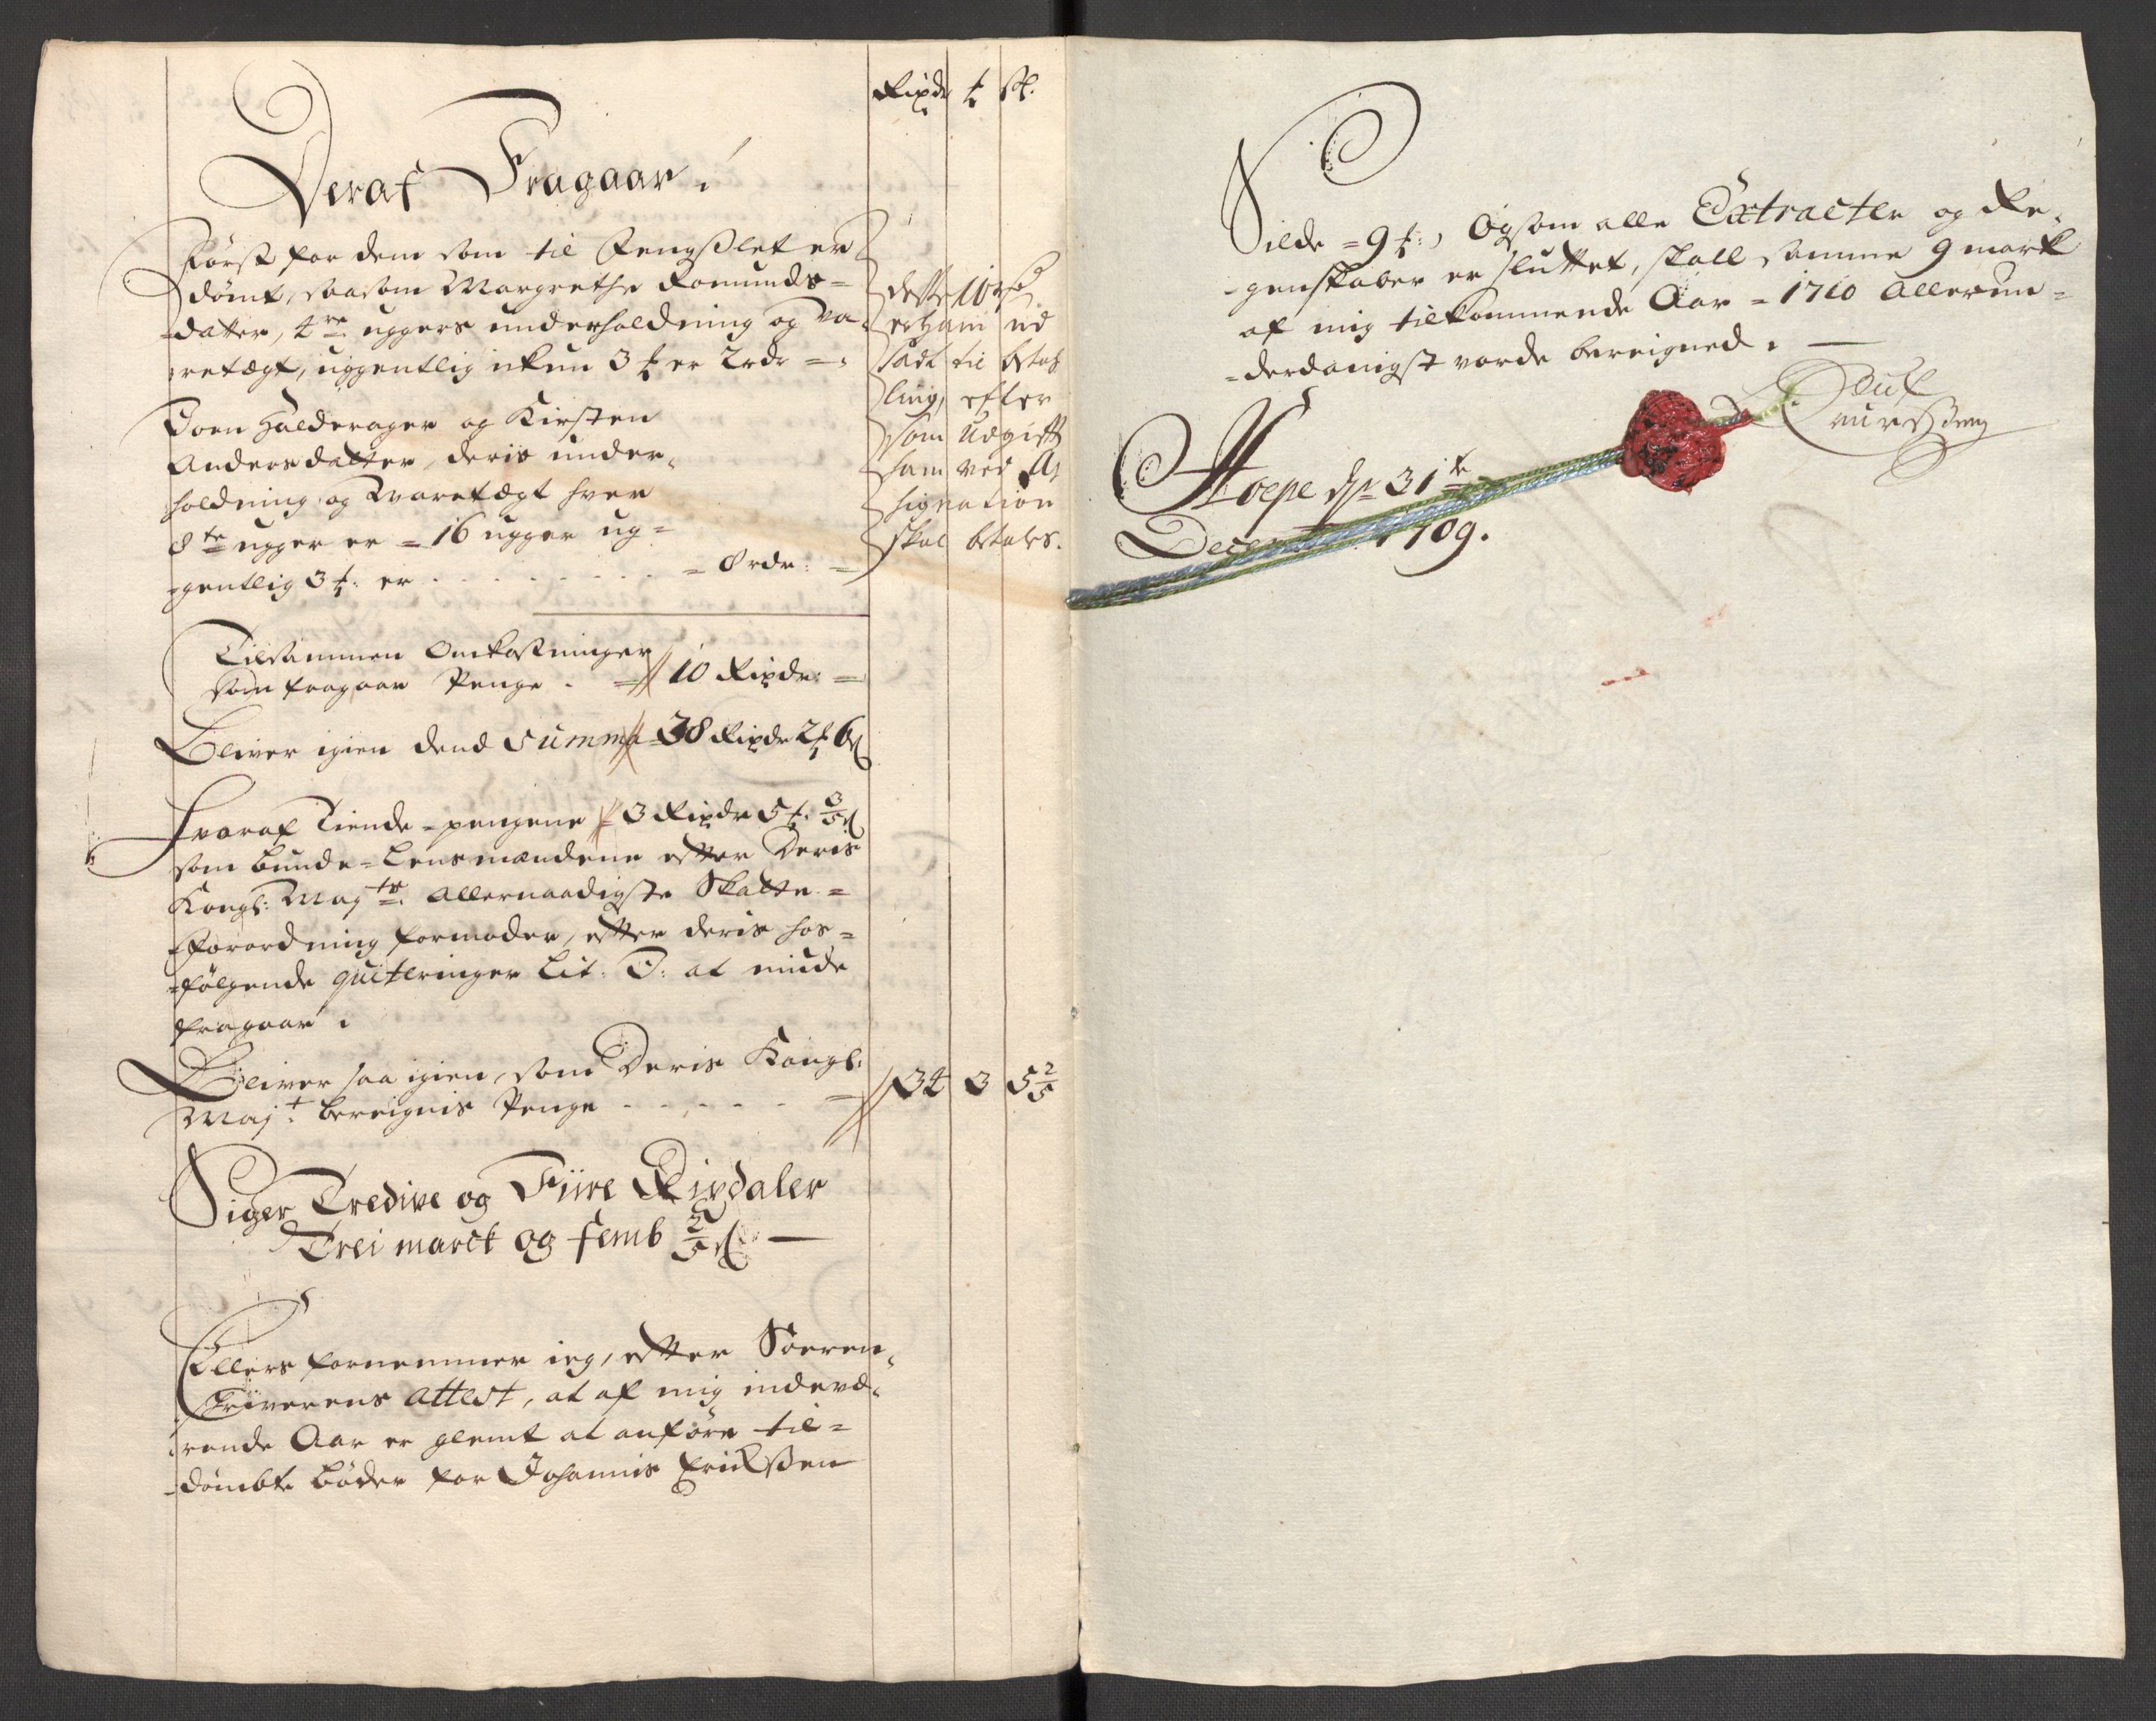 Rixdr ℔ sk.
Deraf Fragaar.
Først for dem som til Fengsslet er
dømt, saasom Margrethe Romunds=
datter, 4re uggers underholdning og va=
retægt, uggentlig ickun 3 ℔ er 2 rdr =
Joen Halderager og Kirsten
Andersdatter, deris under=
holdning og Waretægt hver
8te ugger er = 16 ugger ug=
gentlig 3 ℔: er . . . . . . = 8 rdr: =
dette 10 rd
er ham ud
sadt til betah
ling, efter
som Udgifft
ham ved As
signation
skal betales.
Tilsammen Omkostninger
som fragaar Penge . = 10 Rixdr: =
Bliver igien dend Summa 38 Rixdr 2 ℔ 6 s
Hvoraf Tiende=pengene 3 Rixdr 5 ℔: 3/5 s
som bunde=Lensmændene efter Deris
Kongl: Majts: Allernaadigste Skatte=
Forordning formoder, efter deris hos=
følgende qvitteringer Lit: D: at niude
fragaar.
Bliver saa igien, som Deris Kongl:
Majt: bereignis Penge - - - - - = 34 3 5 2/5
Siger Tredive og Fiire Rixdaler
Trei marck og femb 2/5 s —
Ellers fornemmer ieg, efter Soeren=
skriverens Attest, at af mig indevæ=
rende Aar er glemt at anføre til=
dømbte bøder for Johannis Erichssen
Silde = 9 ℔:, Og som alle Extracter og Re=
genskaber er sluttet, skall samme 9 marck
af mig tilkommende Aar = 1710 Allerun=
derdanigst vorde bereigned. —
Hope dn 31te
Decemb 1709.